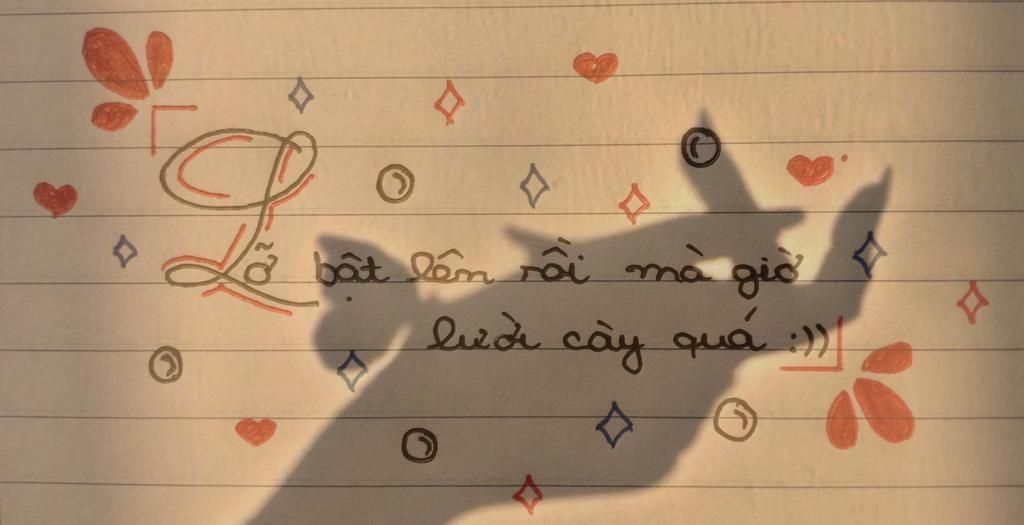 Lỡ bật lên rồi mà giờ
lười cày quá :))